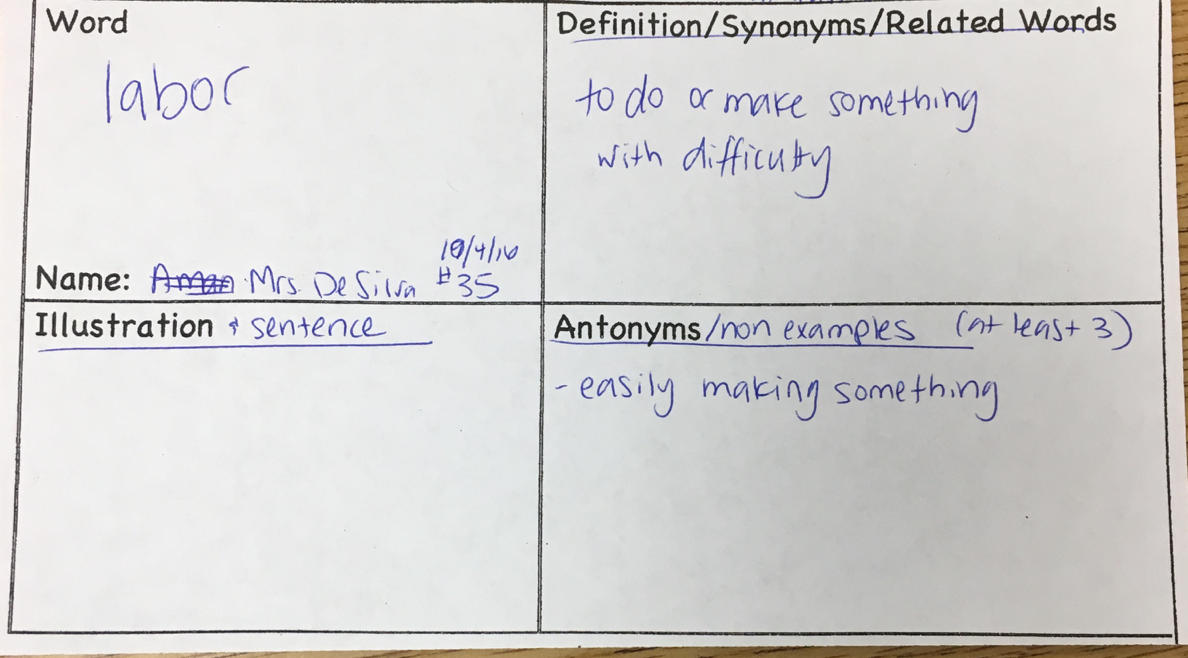 Word
labor
10/4/16
Name: Mrs. De Silva #35
Definition/Synonyms/Related Words
to do or make something
with difficulty
Illustration & sentence
Antonyms/non examples (at least 3)
- easily making something